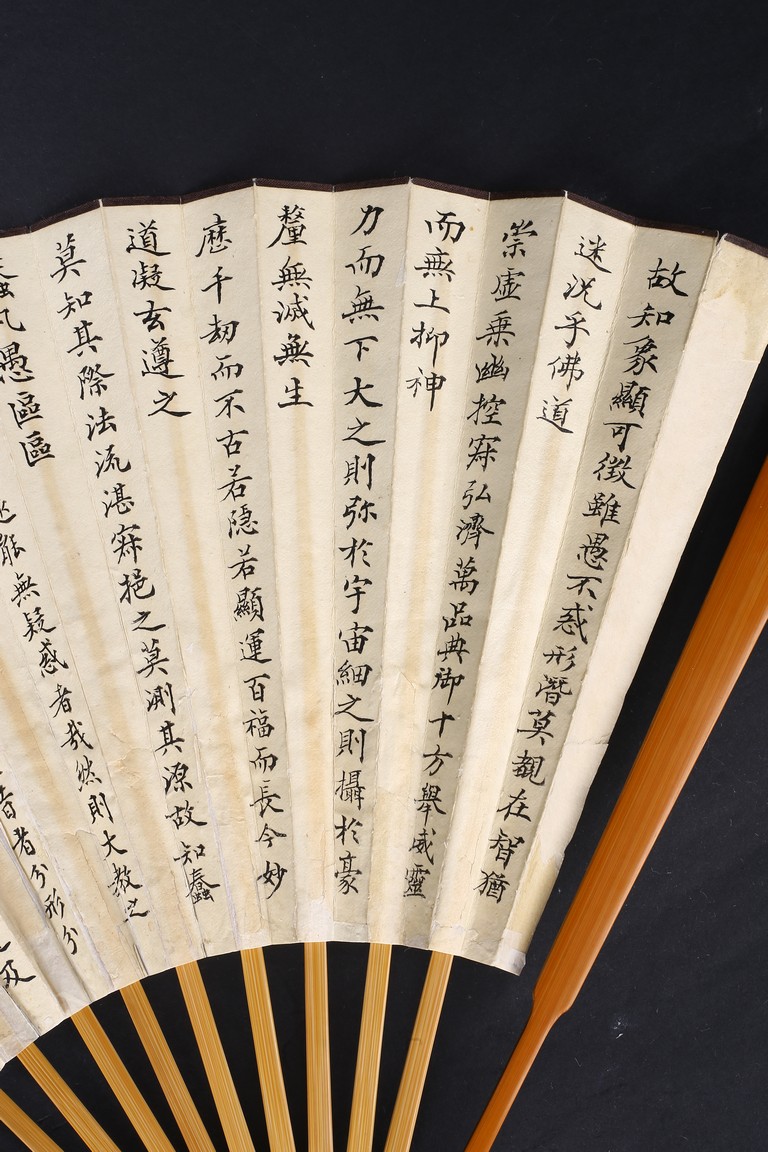 故知象顯可徵雖愚不惑形潛莫覩在智猶
迷況乎佛道
崇虛乗幽控寂弘濟萬品典御十方舉威靈
而無上抑神
力而無下大之則弥於宇宙細之則攝於豪
釐無滅無生
歷千劫而不古若隱若顯運百福而長今妙
道凝玄遵之
莫知其際法流湛寂挹之莫測其源故知蠢
蠢凡愚區區
能無疑惑者哉然則大教之
者分形分
及